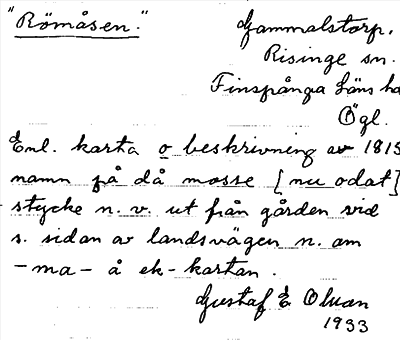 "Römåsen."
Gammalstorp.
Risinge sn.
Finspånga läns ha
Ögl.
Enl. karta o beskrivning av 1815
namn på då mosse [nu odat]
stycke n. v. ut från gården vid
s. sidan av landsvägen n. am
-ma- å ek-kartan.
Gustaf E Olvan
1933